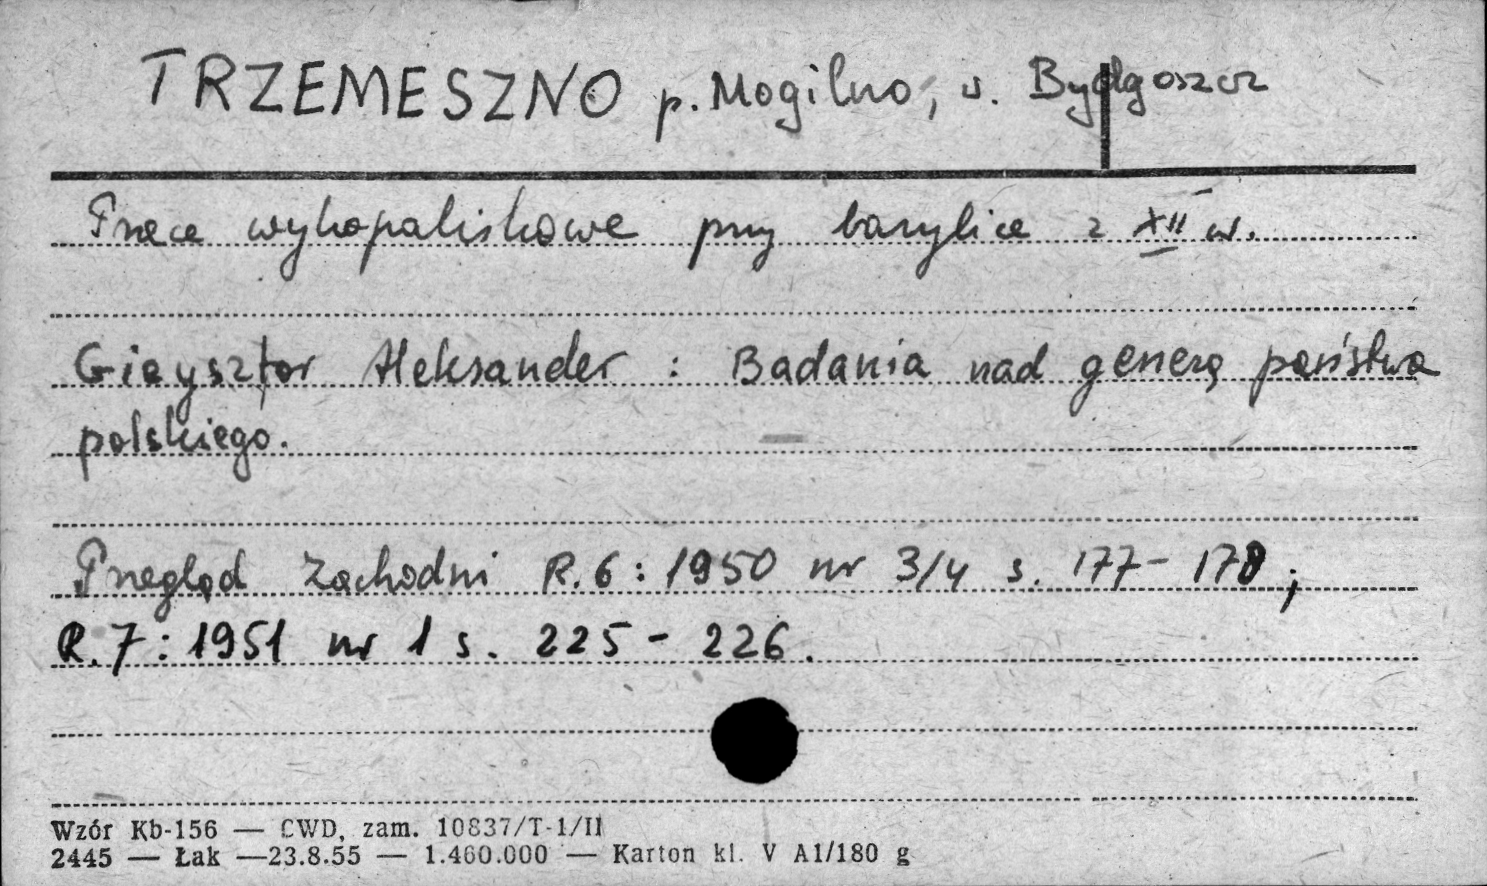 TRZEMESZNO p. Mogilno, w. Bydgoszcz
Prace wykopaliskowe przy bazylice z XII w.
Gieysztor Aleksander : Badania nad genezą państwa
polskiego.
Przegląd Zachodni R. 6 : 1950 nr 3/4 s. 177 - 178 ;
R. 7 : 1951 nr 1 s. 225 - 226.
Wzór Kb-156 — CWD, zam. 10837/T-1/II
2445 — Łak —23.8.55 — 1.460.000 — Karton kl. V A1/180 g